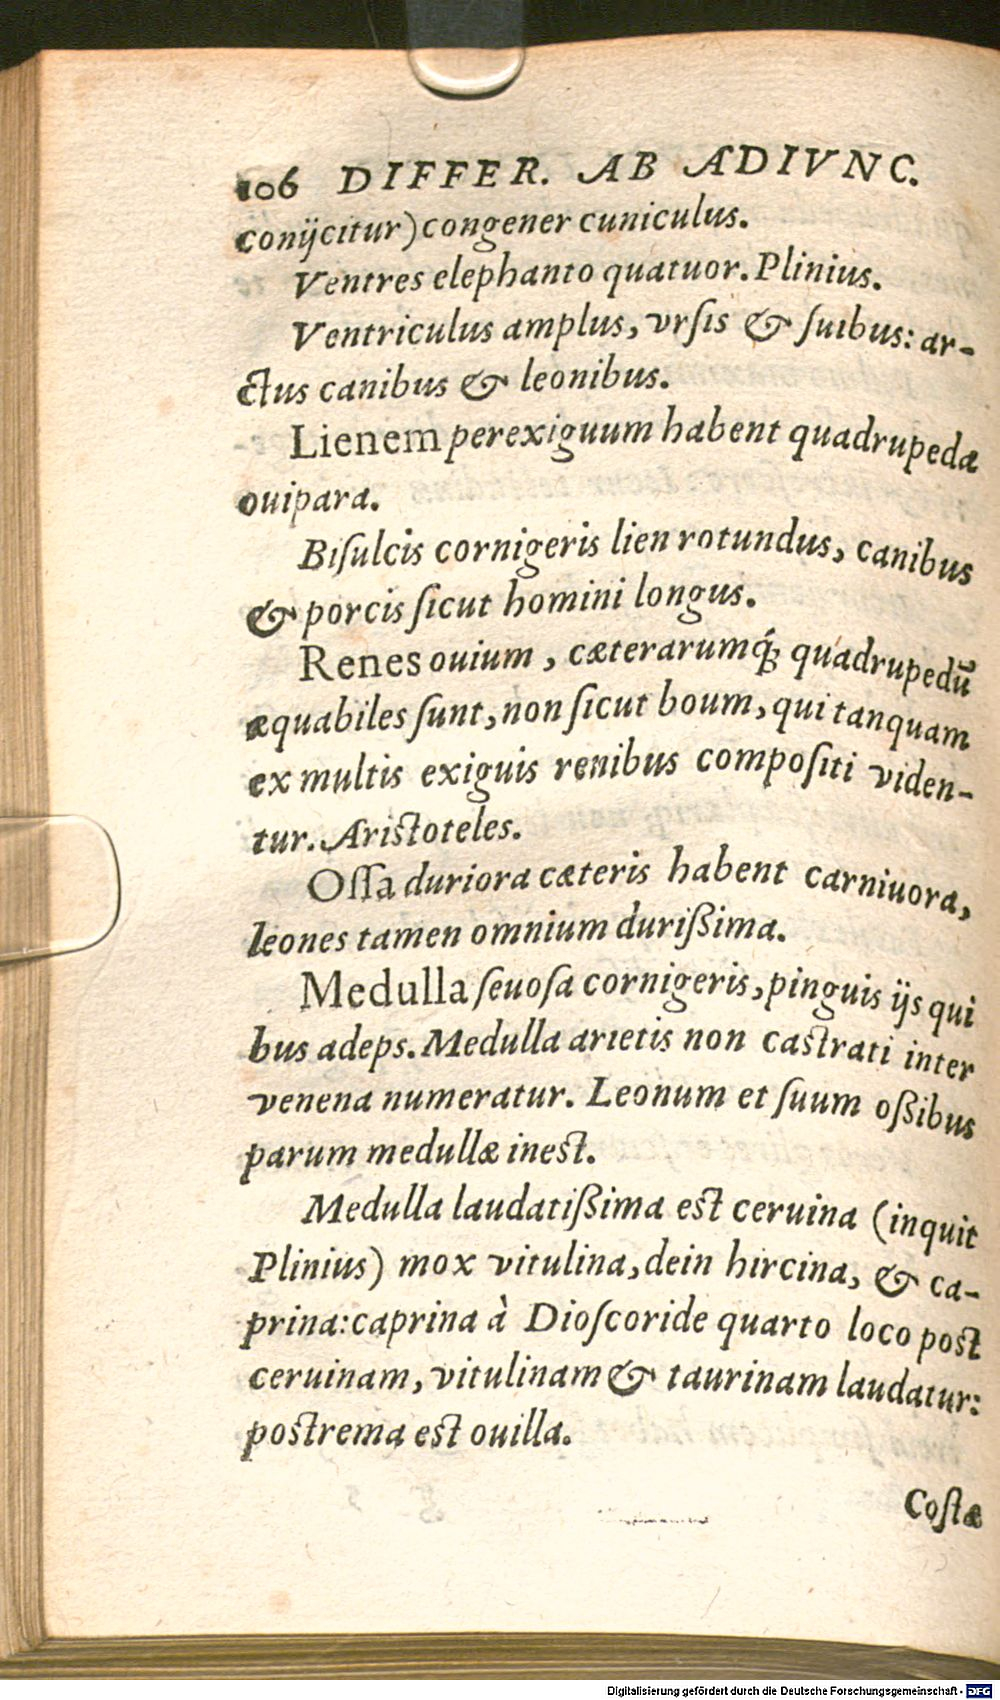 106 DIFFER. AB ADIVNC.
conijcitur) congener cuniculus.
Ventres elephanto quatuor. Plinius.
Ventriculus amplus, vrſis & ſuibus: ar-
ctus canibus & leonibus.
Lienem perexiguum habent quadrupedæ
ouipara.
Biſulcis cornigeris lien rotundus, canibus
& porcis ſicut homini longus.
Renes ouium, cæterarumq́; quadrupedũ
æquabiles ſunt, non ſicut boum, qui tanquam
ex multis exiguis renibus compoſiti viden-
tur. Ariſtoteles.
Oſſa duriora cæteris habent carniuora,
leones tamen omnium durißima.
Medulla ſeuoſa cornigeris, pinguis ijs qui
bus adeps. Medulla arietis non caſtrati inter
venena numeratur. Leonum et ſuum oßibus
parum medullæ ineſt.
Medulla laudatißima eſt ceruina (inquit
Plinius) mox vitulina, dein hircina, & ca-
prina: caprina à Dioſcoride quarto loco poſt
ceruinam, vitulinam & taurinam laudatur:
poſtrema eſt ouilla.
Coſtæ
Digitalisierung gefördert durch die Deutsche Forschungsgemeinschaft - DFG